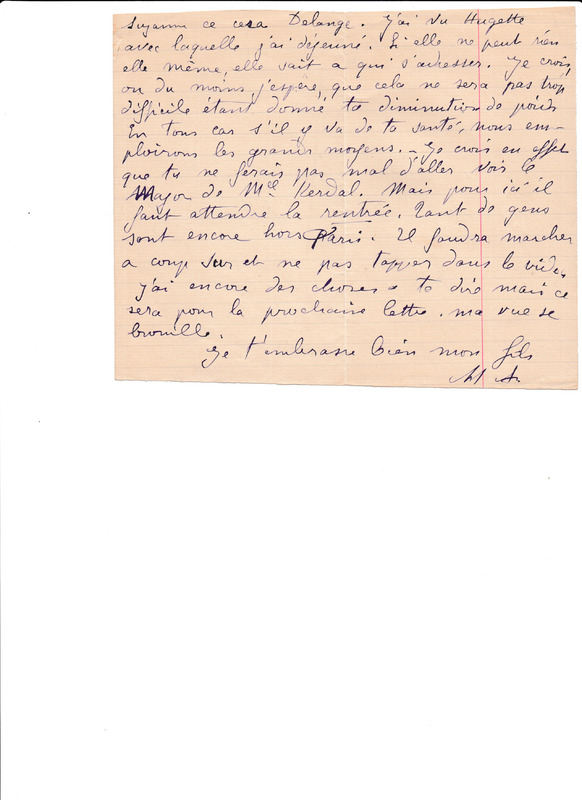 Suzanne ce cera Delange. J'ai vu Hugette
avec laquelle j'ai déjeunné. Si elle ne peut rien
elle même, elle sait a qui s'adresser. Je crois,
ou du moins j'espère, que cela ne sera pas trop
difficile étant donné ta diminution de poids
En tous cas s'il y va de ta santé, nous em-
ploirons les grands moyens. - Je crois en effet
que tu ne ferais pas mal d'aller voir le
Major de Mel Kerdal. Mais pour ici il
faut attendre la rentrée. Tant de gens
sont encore hors Paris. Il faudra marcher
a coup sur et ne pas tapper dans le vide.
j'ai encore des choses a te dire mais ce
sera pour la prochaine lettre. ma vue se
brouille.
Je t'embrasse bien mon fils